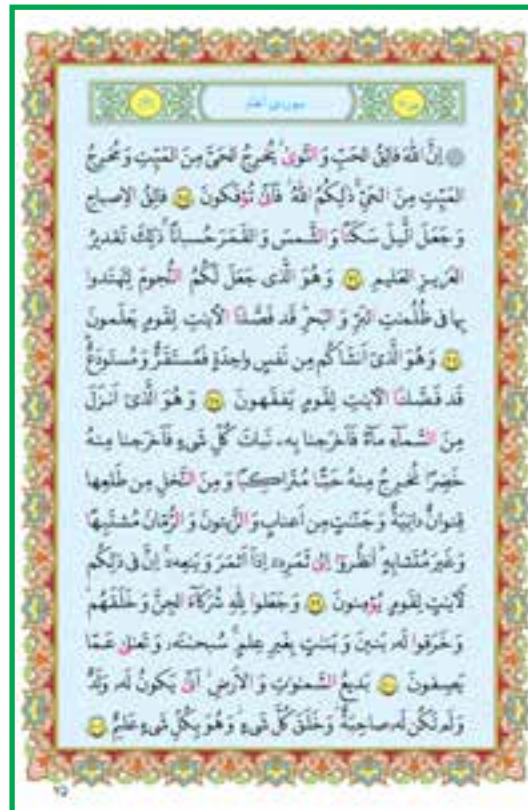 سوره‌ی انعام
اِنَّ اللهَ فالِقُ الحَبِّ وَ النَّوىٰ يُخرِجُ الحَیَّ مِنَ المَيِّتِ وَ مُخرِجُ
المَيِّتِ مِنَ الحَیِّ ذٰلِكُمُ اللهُ فَاَنّىٰ تُؤفَكونَ ﴿۹۵﴾ فالِقُ الاِصباحِ
وَ جَعَلَ الَّيلَ سَكَنًا وَ الشَّمسَ وَ القَمَرَ حُسبانًا ذٰلِكَ تَقديرُ
العَزيزِ العَليمِ ﴿۹۶﴾ وَ هُوَ الَّذى جَعَلَ لَكُمُ النُّجومَ لِتَهتَدوا
بِها فى ظُلُمٰتِ البَرِّ وَ البَحرِ قَد فَصَّلنَا الاٰيٰتِ لِقَومٍ يَعلَمونَ
﴿۹۷﴾ وَ هُوَ الَّذى اَنشَاَكُم مِن نَفسٍ واحِدَةٍ فَمُستَقَرٌّ وَ مُستَودَعٌ
قَد فَصَّلنَا الاٰيٰتِ لِقَومٍ يَفقَهونَ ﴿۹۸﴾ وَ هُوَ الَّذى اَنزَلَ
مِنَ السَّماءِ ماءً فَاَخرَجنا بِه نَباتَ كُلِّ شَیءٍ فَاَخرَجنا مِنهُ
خَضِرًا نُخرِجُ مِنهُ حَبًّا مُتَراكِبًا وَ مِنَ النَّخلِ مِن طَلعِها
قِنوانٌ دانِيَةٌ وَ جَنّٰتٍ مِن اَعنابٍ وَ الزَّيتونَ وَ الرُّمّانَ مُشتَبِهًا
وَ غَيرَ مُتَشابِهٍ اُنظُروا اِلىٰ ثَمَرِه اِذا اَثمَرَ وَ يَنعِه اِنَّ فى ذٰلِكُم
لَاٰيٰتٍ لِقَومٍ يُؤمِنونَ ﴿۹۹﴾ وَ جَعَلوا لِلّٰهِ شُرَكاءَ الجِنَّ وَ خَلَقَهُم
وَ خَرَقوا لَه بَنينَ وَ بَنٰتٍ بِغَيرِ عِلمٍ سُبحٰنَه وَ تَعٰلىٰ عَمّا
يَصِفونَ ﴿۱۰۰﴾ بَديعُ السَّمٰوٰتِ وَ الاَرضِ اَنّىٰ يَكونُ لَه وَلَدٌ
وَ لَم تَكُن لَه صاحِبَةٌ وَ خَلَقَ كُلَّ شَیءٍ وَ هُوَ بِكُلِّ شَیءٍ عَليمٌ ﴿۱۰۱﴾